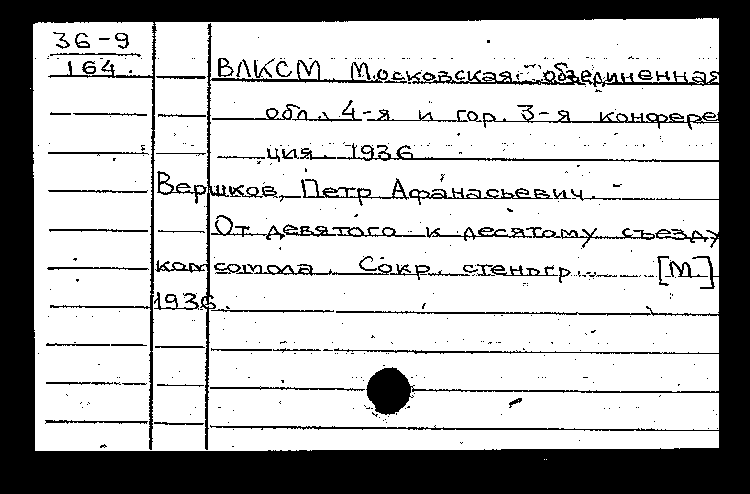 36-9
164.
ВЛКСМ Московская объединенная
обл. 4-я и гор. 3-я конфере
ция. 1936
Вершков, Петр Афанасьевич.
От девятого к десятому съезду
комсомола. Сокр. стеногр... [М.]
1936.